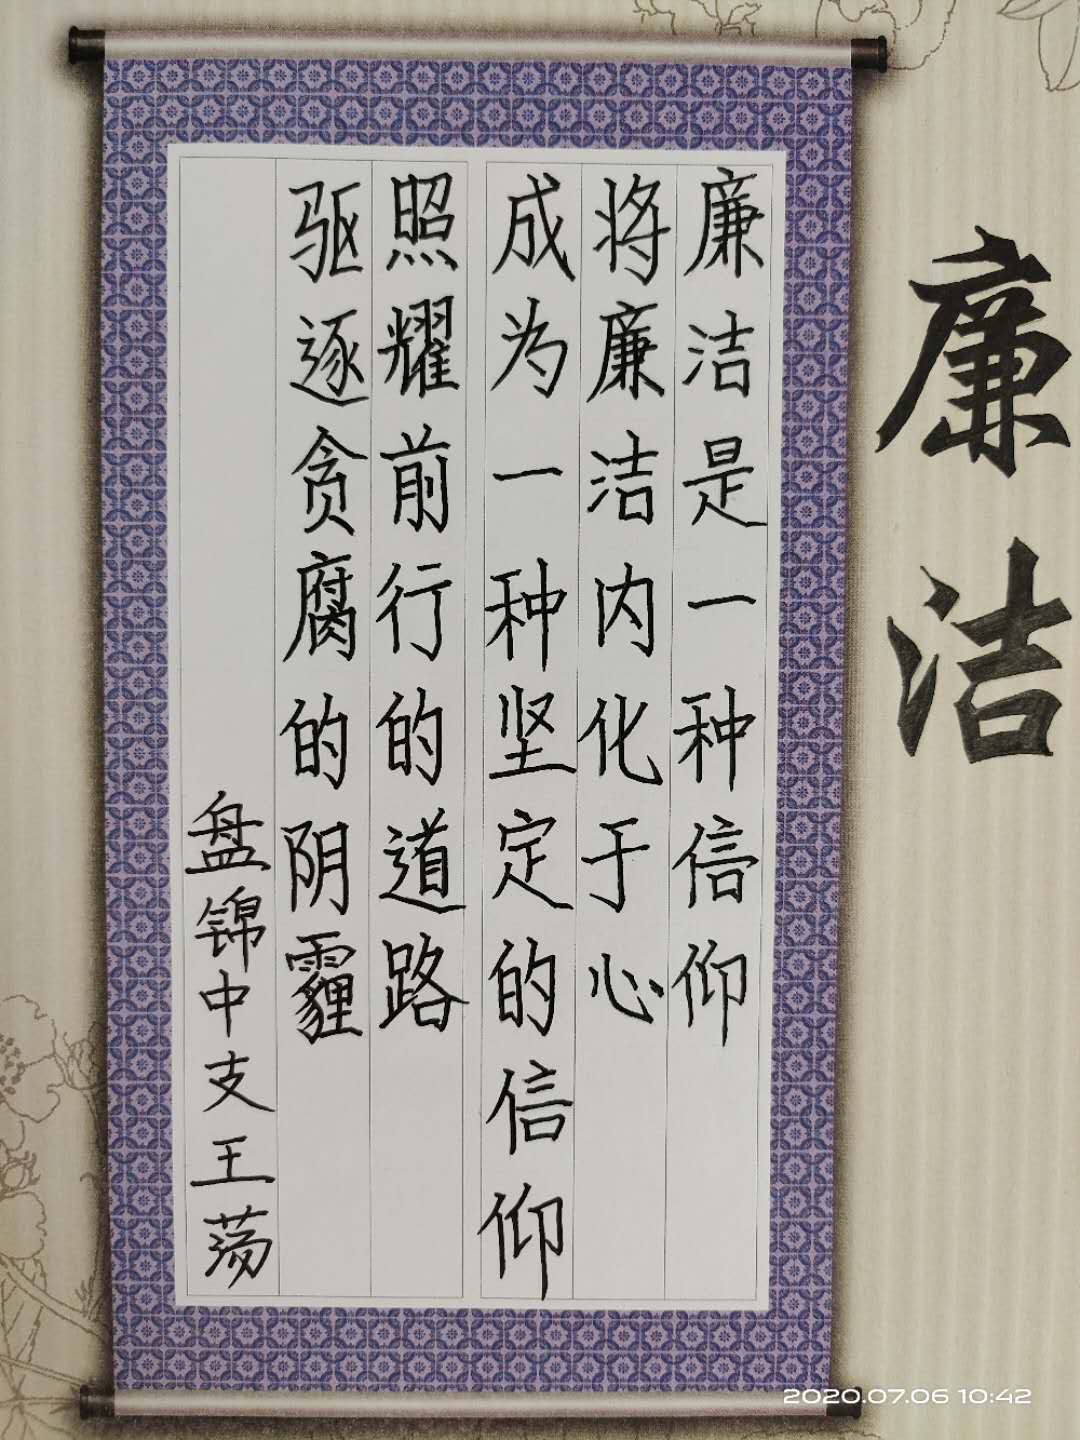 廉洁
廉洁是一种信仰
将廉洁内化于心
成为一种坚定的信仰
照耀前行的道路
驱逐贪腐的阴霾
盘锦中支王荡
2020.07.06 10:42